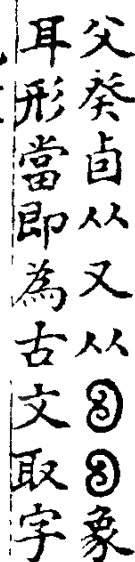 父癸卣从又从𠃉𠃉象
耳形當即為古文取字